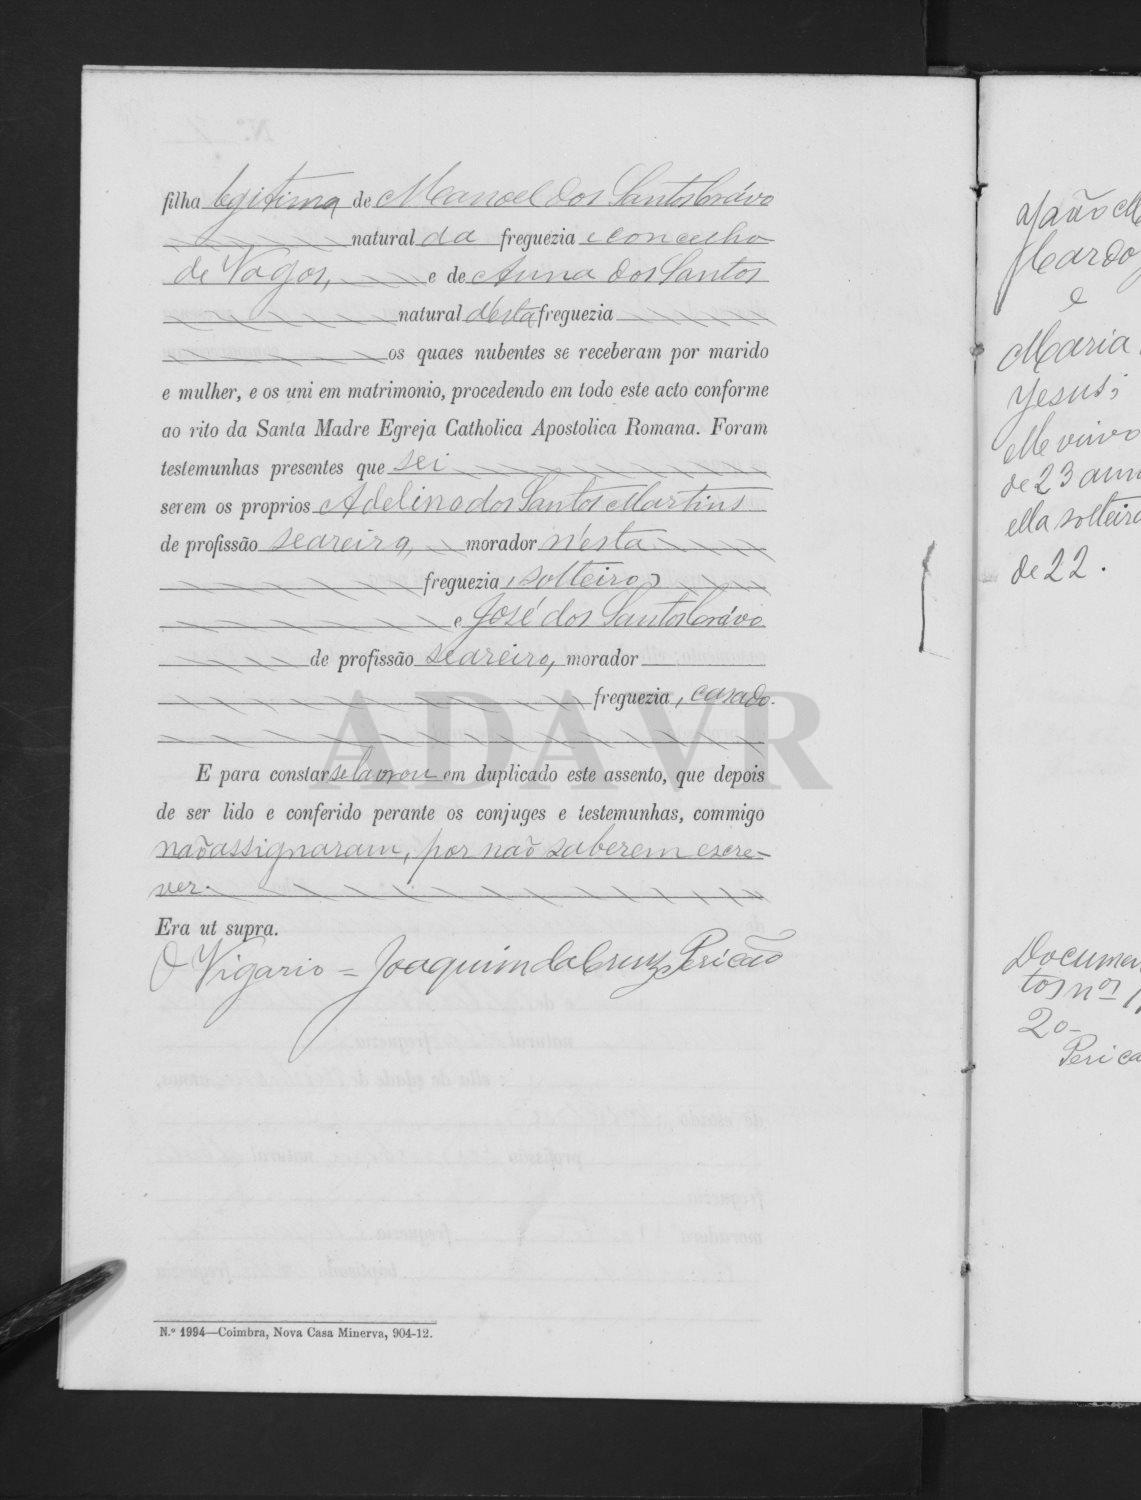 filha legitima de Manoel dos Santos Crávo
natural da freguezia e concelho
de Vagos, e de Anna dos Santos
natural d'esta freguezia
os quaes nubentes se receberam por marido
e mulher, e os uni em matrimonio, procedendo em todo este acto conforme
ao rito da Santa Madre Egreja Catholica Apostolica Romana. Foram
testemunhas presentes que sei
serem os proprios Adelino dos Santos Martins
de profissão seareiro, morador n'esta
freguezia, solteiro,
e José dos Santos Crávo
de profissão seareiro, morador
freguezia, casado.
E para constar se lavrou em duplicado este assento, que depois
de ser lido e conferido perante os conjuges e testemunhas, commigo
não assignaram, por não saberem escre-
ver.
Era ut supra.
O Vigario = Joaquim da Cruz Pericão
N.º 1994—Coimbra, Nova Casa Minerva, 904-12.
ADAVR
João M
Cardo
e
Maria
Jesus;
elle viuvo
de 23 ann
ella solteir
de 22.
Documen
tos nos 1,
2º-
Perica